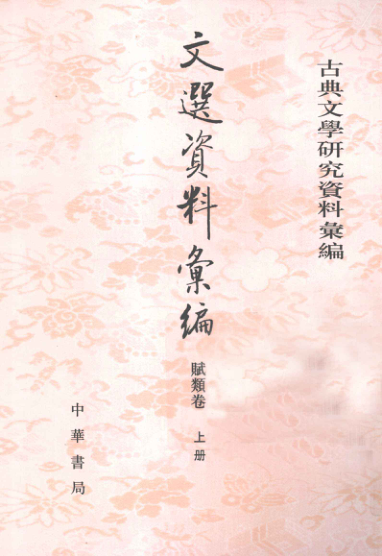 古典文學研究資料彙編
文選資料彙編
賦類卷 上册
中華書局